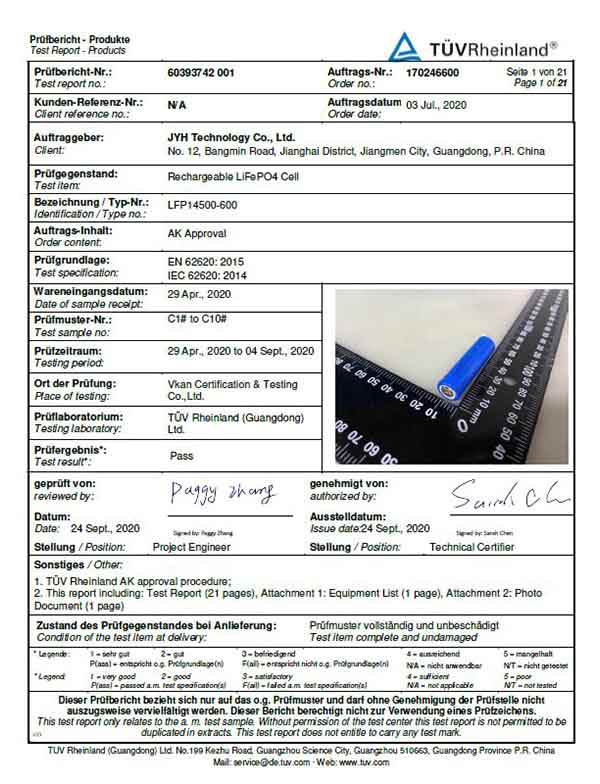 Prüfbericht - Produkte
Test Report - Products
TÜVRheinland®
Prüfbericht-Nr.: 60393742 001 Auftrags-Nr.: 170246600 Seite 1 von 21
Test report no.: Order no.: Page 1 of 21
Kunden-Referenz-Nr.: N/A Auftragsdatum 03 Jul., 2020
Client reference no.: Order date:
Auftraggeber: JYH Technology Co., Ltd.
Client: No. 12, Bangmin Road, Jianghai District, Jiangmen City, Guangdong, P.R. China
Prüfgegenstand: Rechargeable LiFePO4 Cell
Test item:
Bezeichnung / Typ-Nr.: LFP14500-600
Identification / Type no.:
Auftrags-Inhalt: AK Approval
Order content:
Prüfgrundlage: EN 62620: 2015
Test specification: IEC 62620: 2014
Wareneingangsdatum: 29 Apr., 2020
Date of sample receipt:
Prüfmuster-Nr.: C1# to C10#
Test sample no:
Prüfzeitraum: 29 Apr., 2020 to 04 Sept., 2020
Testing period:
Ort der Prüfung: Vkan Certification & Testing
Place of testing: Co.,Ltd.
Prüflaboratorium: TÜV Rheinland (Guangdong)
Testing laboratory: Ltd.
Prüfergebnis*: Pass
Test result*:
geprüft von: Peggy Zhang genehmigt von: Sarah Ch
reviewed by: authorized by:
Datum: Ausstelldatum:
Date: 24 Sept., 2020 Signed by: Peggy Zhang Issue date:24 Sept., 2020 Signed by: Sarah Chen
Stellung / Position: Project Engineer Stellung / Position: Technical Certifier
Sonstiges / Other:
1. TÜV Rheinland AK approval procedure;
2. This report including: Test Report (21 pages), Attachment 1: Equipment List (1 page), Attachment 2: Photo
Document (1 page)
Zustand des Prüfgegenstandes bei Anlieferung: Prüfmuster vollständig und unbeschädigt
Condition of the test item at delivery: Test item complete and undamaged
* Legende: 1 = sehr gut 2 = gut 3 = befriedigend 4 = ausreichend 5 = mangelhaft
P(ass) = entspricht o.g. Prüfgrundlage(n) F(ail) = entspricht nicht o.g. Prüfgrundlage(n) N/A = nicht anwendbar N/T = nicht getestet
* Legend: 1 = very good 2 = good 3 = satisfactory 4 = sufficient 5 = poor
P(ass) = passed a.m. test specification(s) F(ail) = failed a.m. test specification(s) N/A = not applicable N/T = not tested
Dieser Prüfbericht bezieht sich nur auf das o.g. Prüfmuster und darf ohne Genehmigung der Prüfstelle nicht
auszugsweise vervielfältigt werden. Dieser Bericht berechtigt nicht zur Verwendung eines Prüfzeichens.
This test report only relates to the a. m. test sample. Without permission of the test center this test report is not permitted to be
duplicated in extracts. This test report does not entitle to carry any test mark.
TÜV Rheinland (Guangdong) Ltd. No.199 Kezhu Road, Guangzhou Science City, Guangzhou 510663, Guangdong Province P.R. China
Mail: service@de.tuv.com · Web: www.tuv.com